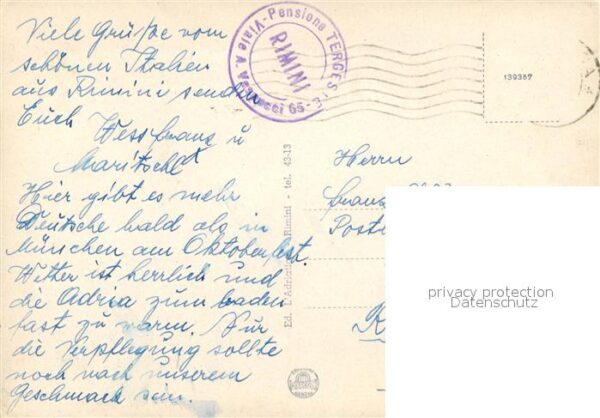 Viele Grüße vom
schönen Italien
aus Rimini senden
Euch
Wessfranz u
Maritschl
Hier gibt es mehr
Deutsche bald als in
München am Oktoberfest.
Wetter ist herrlich und
die Adria zum baden
fast zu warm. Nur
die Verpflegung sollte
noch nach unserem
Geschmack sein.
Pensione TERGES
Viale A. Vespucci 65-
RIMINI
139367
Ed. L'Adriat Rimini - tel. 43-13
Herrn
Franz
Post
privacy protection
Datenschutz